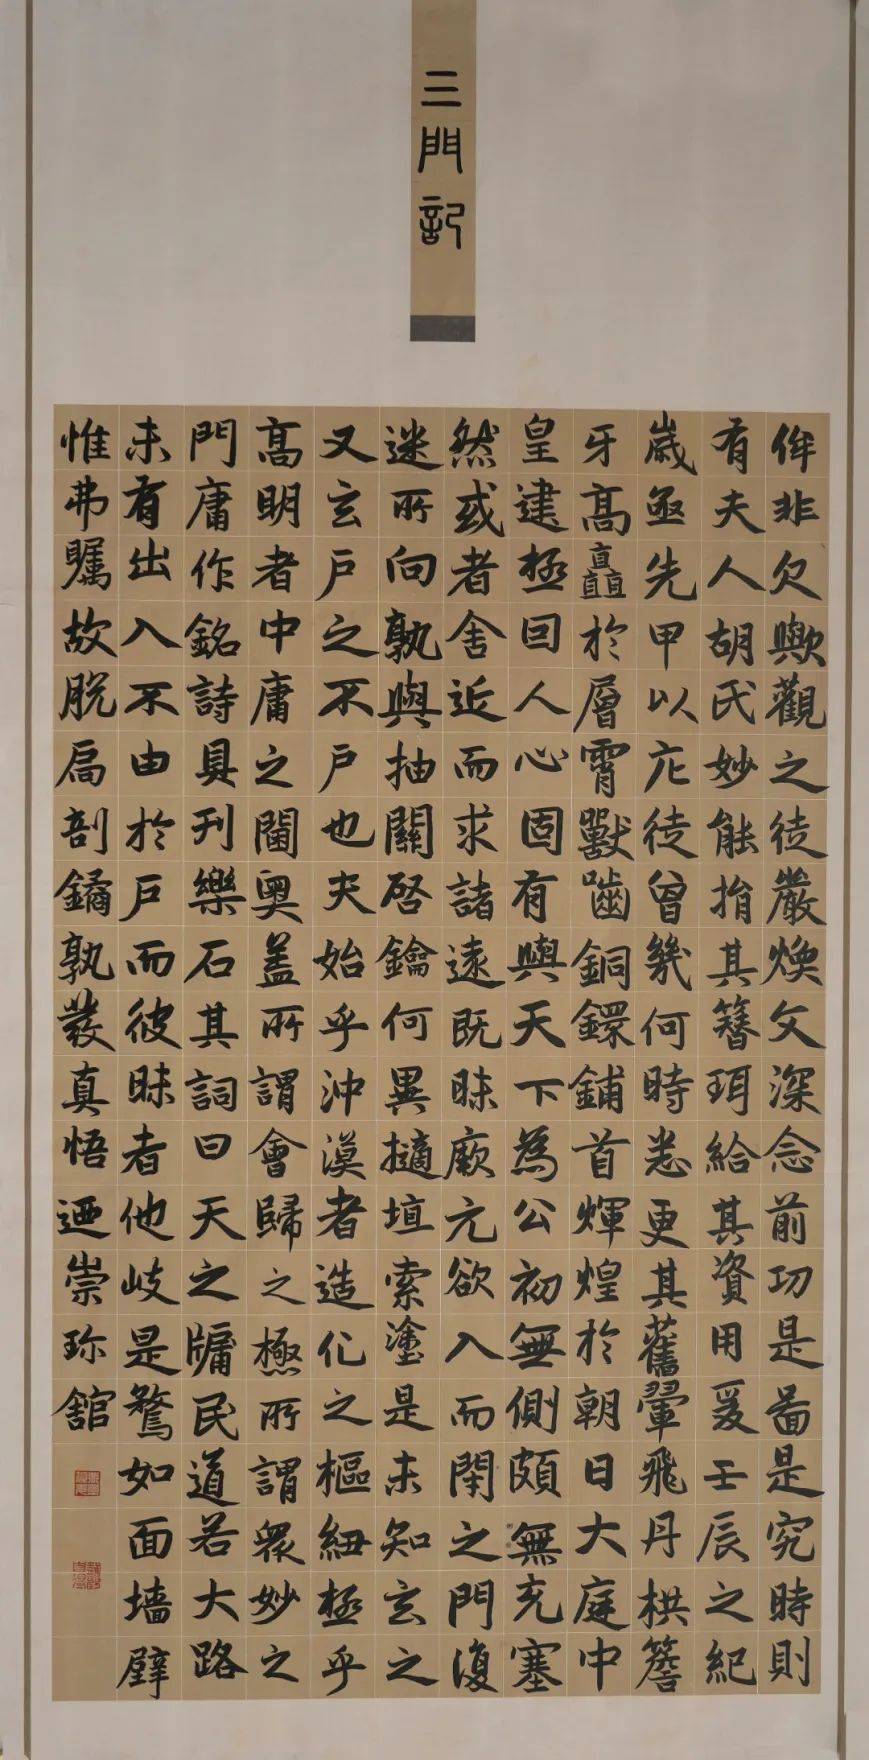 三門記
侔非欠歟觀之徒嚴煥文深念前功是啚是究時則
有夫人胡氏妙能捐其簪珥給其資用爰壬辰之紀
歲亟先甲以庀徒曾幾何時悉更其舊翬飛丹栱簷
牙高矗於層霄獸嚙銅鐶鋪首輝煌於朝日大庭中
皇建極回人心固有與天下為公初無側頗無充塞
然或者舍近而求諸遠既昧厥元欲入而閉之門復
迷所向孰與抽關啓鑰何異擿埴索塗是未知玄之
又玄戶之不戶也夫始乎沖漠者造化之樞紐極乎
高明者中庸之閫奧蓋所謂會歸之極所謂衆妙之
門庸作銘詩具刊樂石其詞曰天之牖民道若大路
未有出入不由於戶而彼昧者他岐是騖如面墻壁
惟弗矚故脫扃剖鐍孰發真悟迺崇珎舘